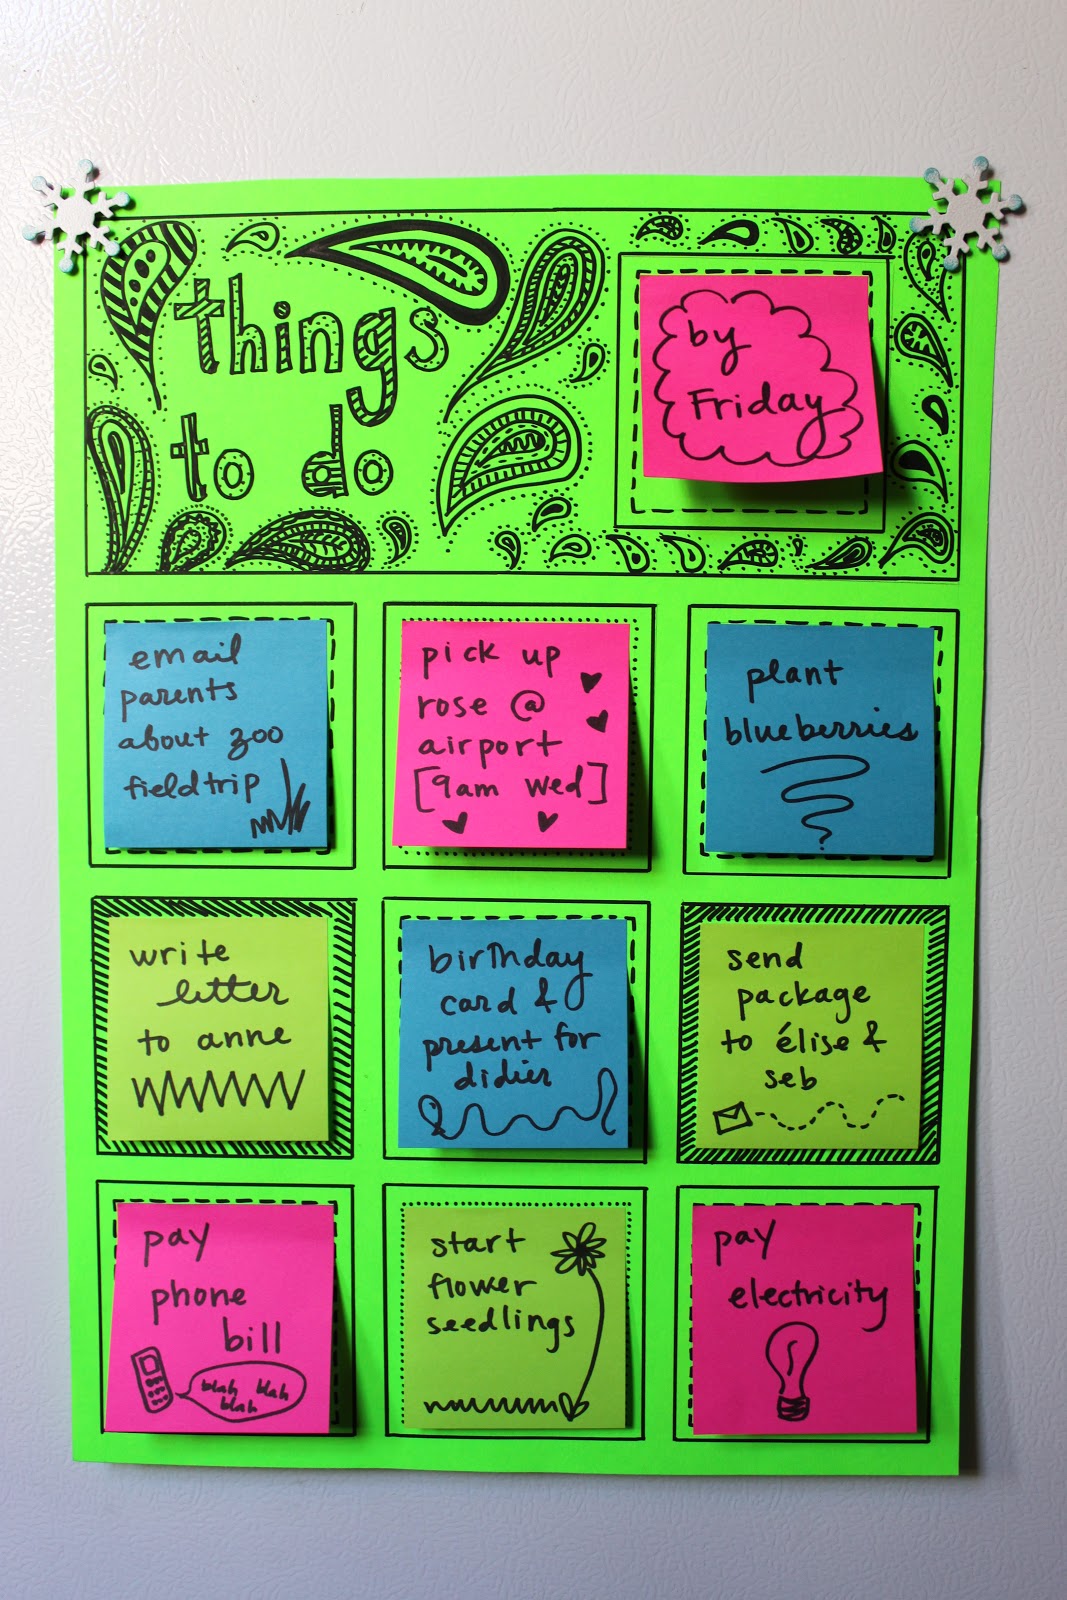 things
to do
by
Friday
email
parents
about zoo
fieldtrip
pick up
rose @
airport
[9am wed]
plant
blueberries
write
letter
to anne
birthday
card &
present for
didier
send
package
to élise &
seb
pay
phone
bill
blah blah
blah
start
flower
seedlings
pay
electricity